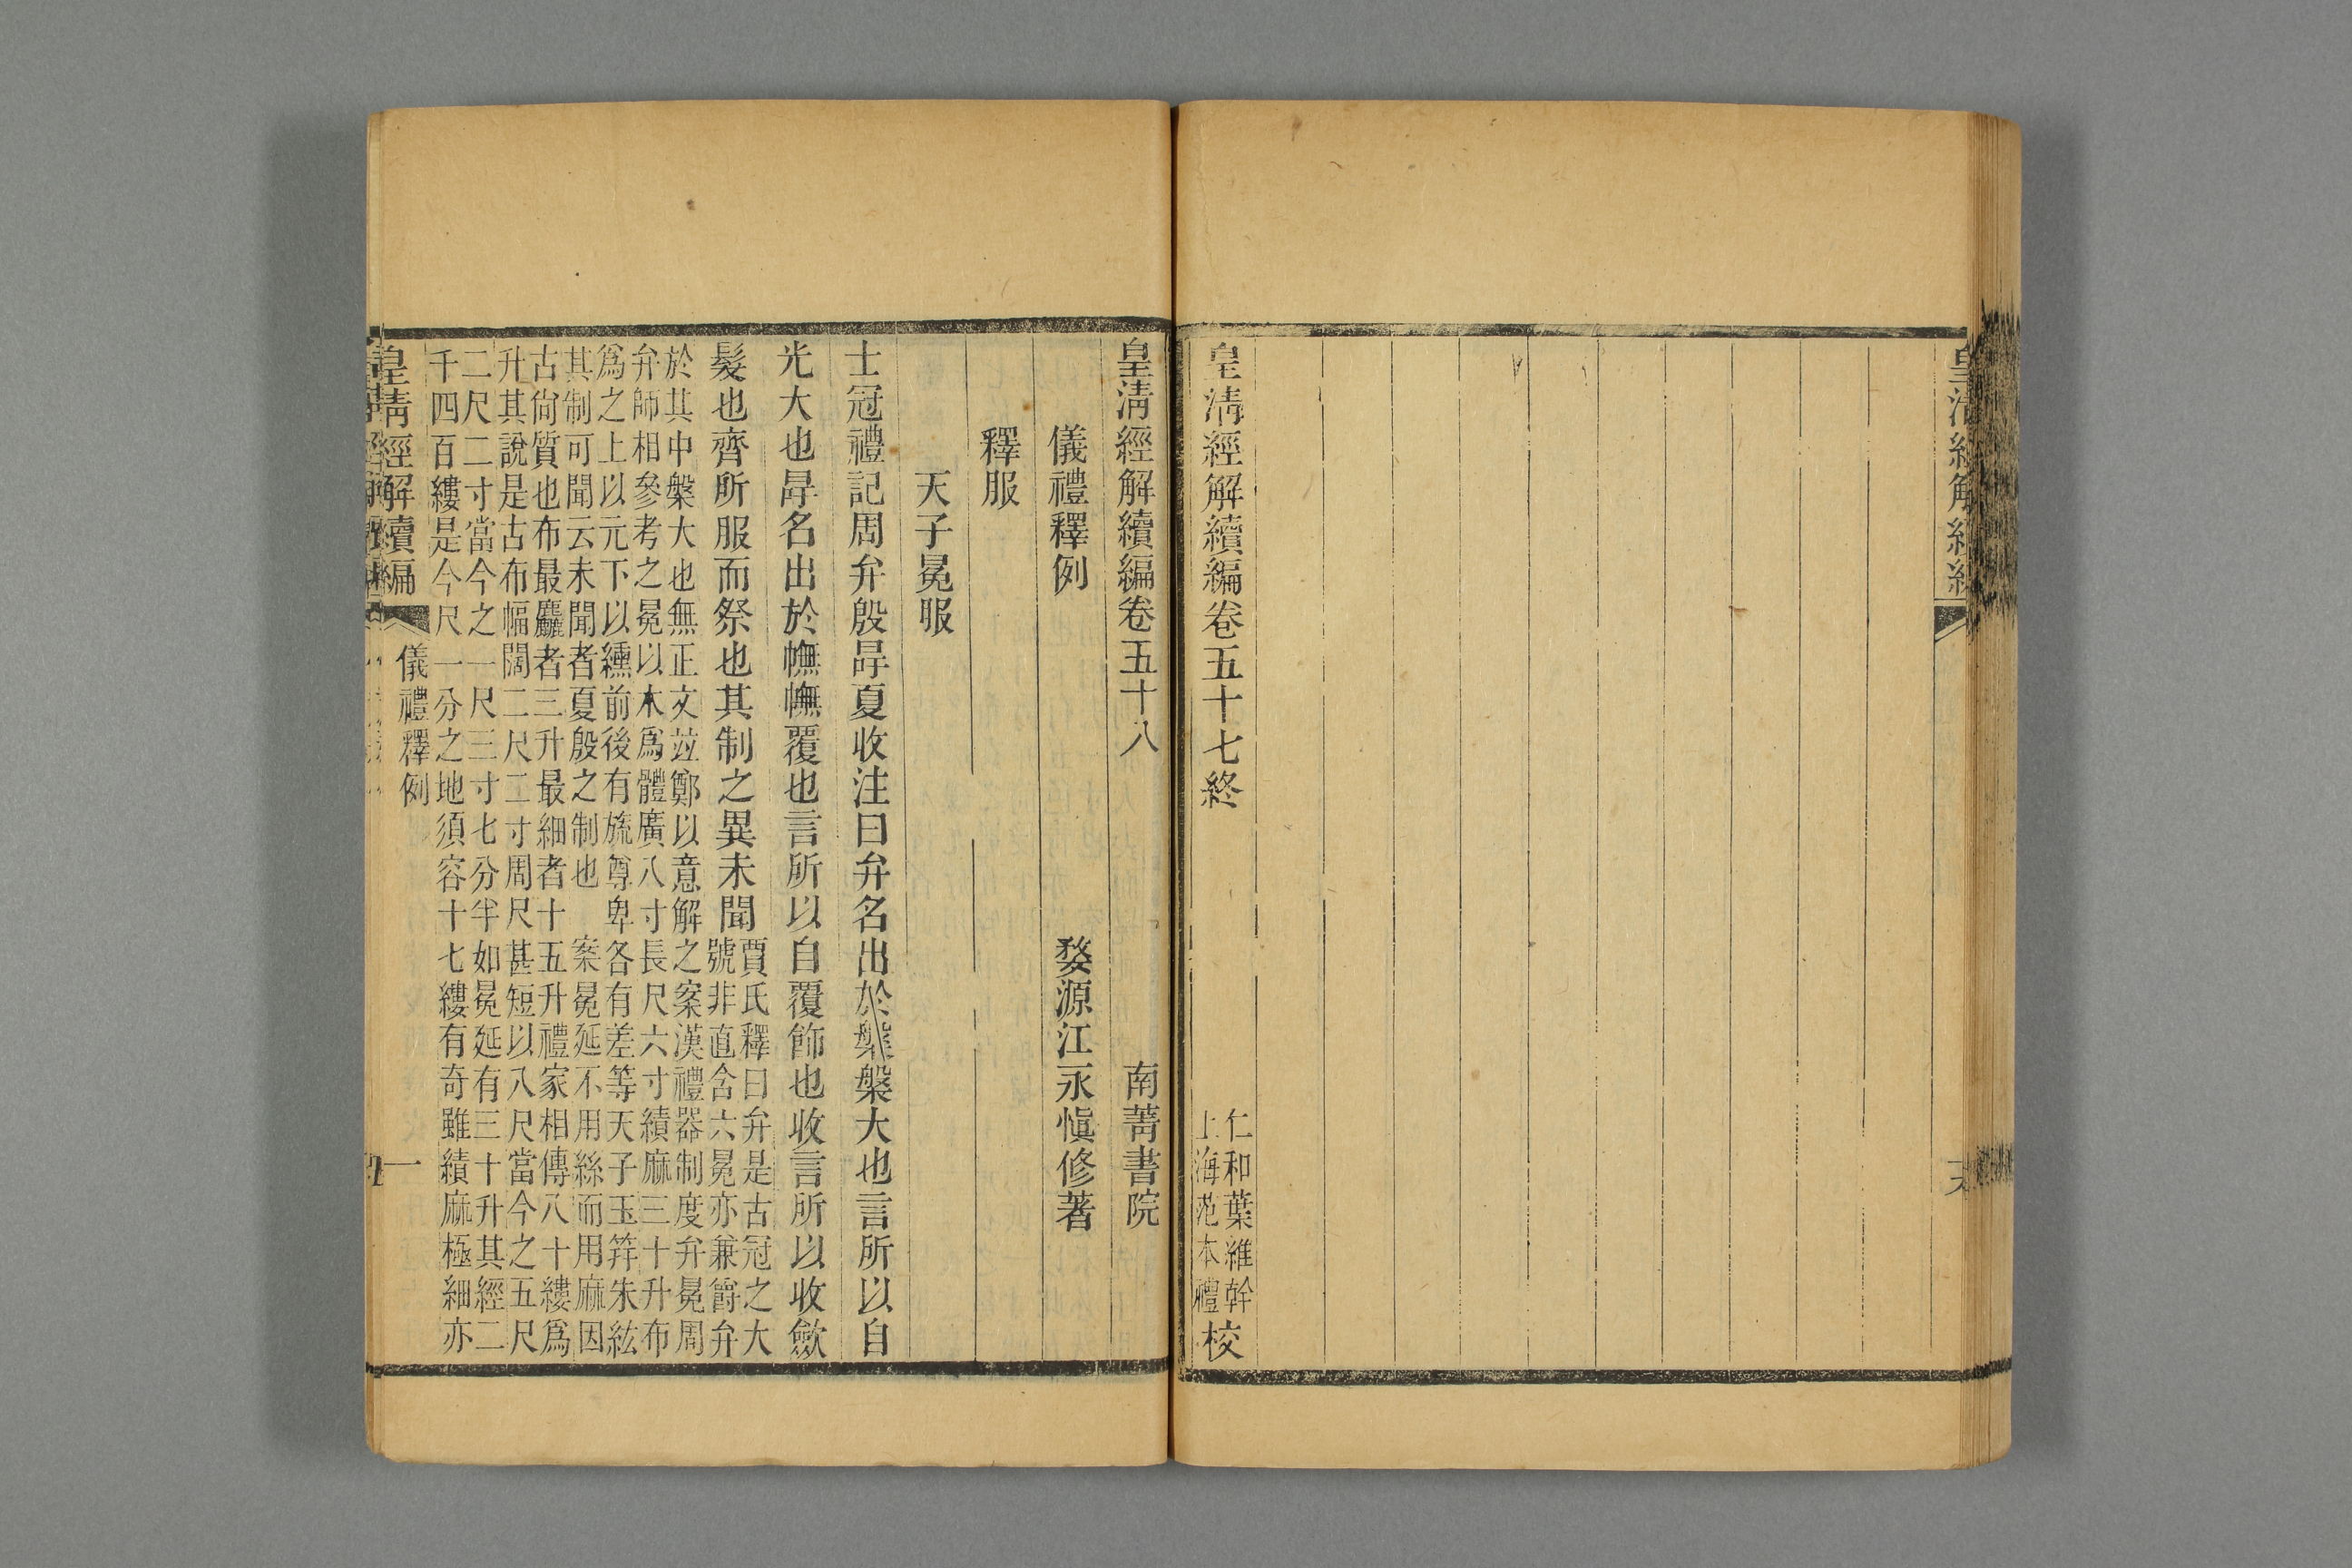 皇清經解續編卷五十七終
仁和葉維幹
上海范本禮
校
皇清經解續編卷五十八 南菁書院
儀禮釋例 婺源江永愼修著
釋服
天子冕服
士冠禮記周弁殷冔夏收注曰弁名出於槃槃大也言所以自
光大也冔名出於幠幠覆也言所以自覆飾也收言所以收斂
髮也齊所服而祭也其制之異未聞
賈氏釋曰弁是古冠之大
號非直含六冕亦兼爵弁
於其中槃大也無正文竝鄭以意解之案漢禮器制度弁冕周
弁師相參考之冕以木爲體廣八寸長尺六寸績麻三十升布
爲之上以元下以纁前後有旒尊卑各有差等天子玉笄朱紘
其制可聞云未聞者夏殷之制也 案冕延不用絲而用麻因
古尙質也布最麤者三升最細者十五升禮家相傳八十縷爲
升其說是古布幅闊二尺二寸周尺甚短以八尺當今之五尺
二尺二寸當今之一尺三寸七分半如冕延有三十升其經二
千四百縷是今尺一分之地須容十七縷有奇雖績麻極細亦
皇清經解續編 儀禮釋例 一